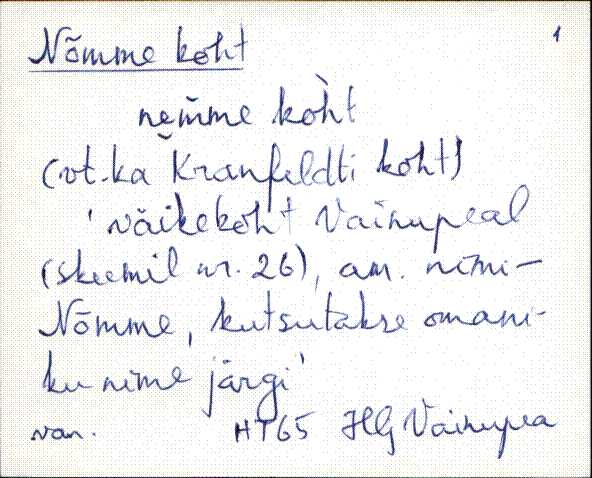 Nõmme koht 1
nem̆me kòh̀t
(vt. ka Kranfeldti koht)
'väikekoht Vainupeal
(skeemil nr. 26), am. nimi-
Nõmme, kutsutakse omani-
ku nime järgi'
van. HT65 HlJ Vainupea